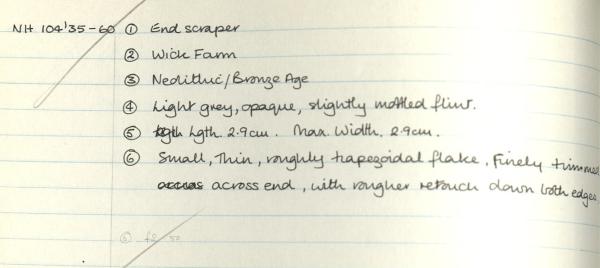 NH 104'35-60 ① End scraper
② Wick Farm
③ Neolithic/Bronze Age
④ Light grey, opaque, slightly mottled flint.
⑤ lgth Lgth. 2.9cm. Max. Width. 2.9cm.
⑥ Small, Thin, roughly trapezoidal flake, Finely trimmed
across across end, with rougher retouch down both edges
⑥ f2 50